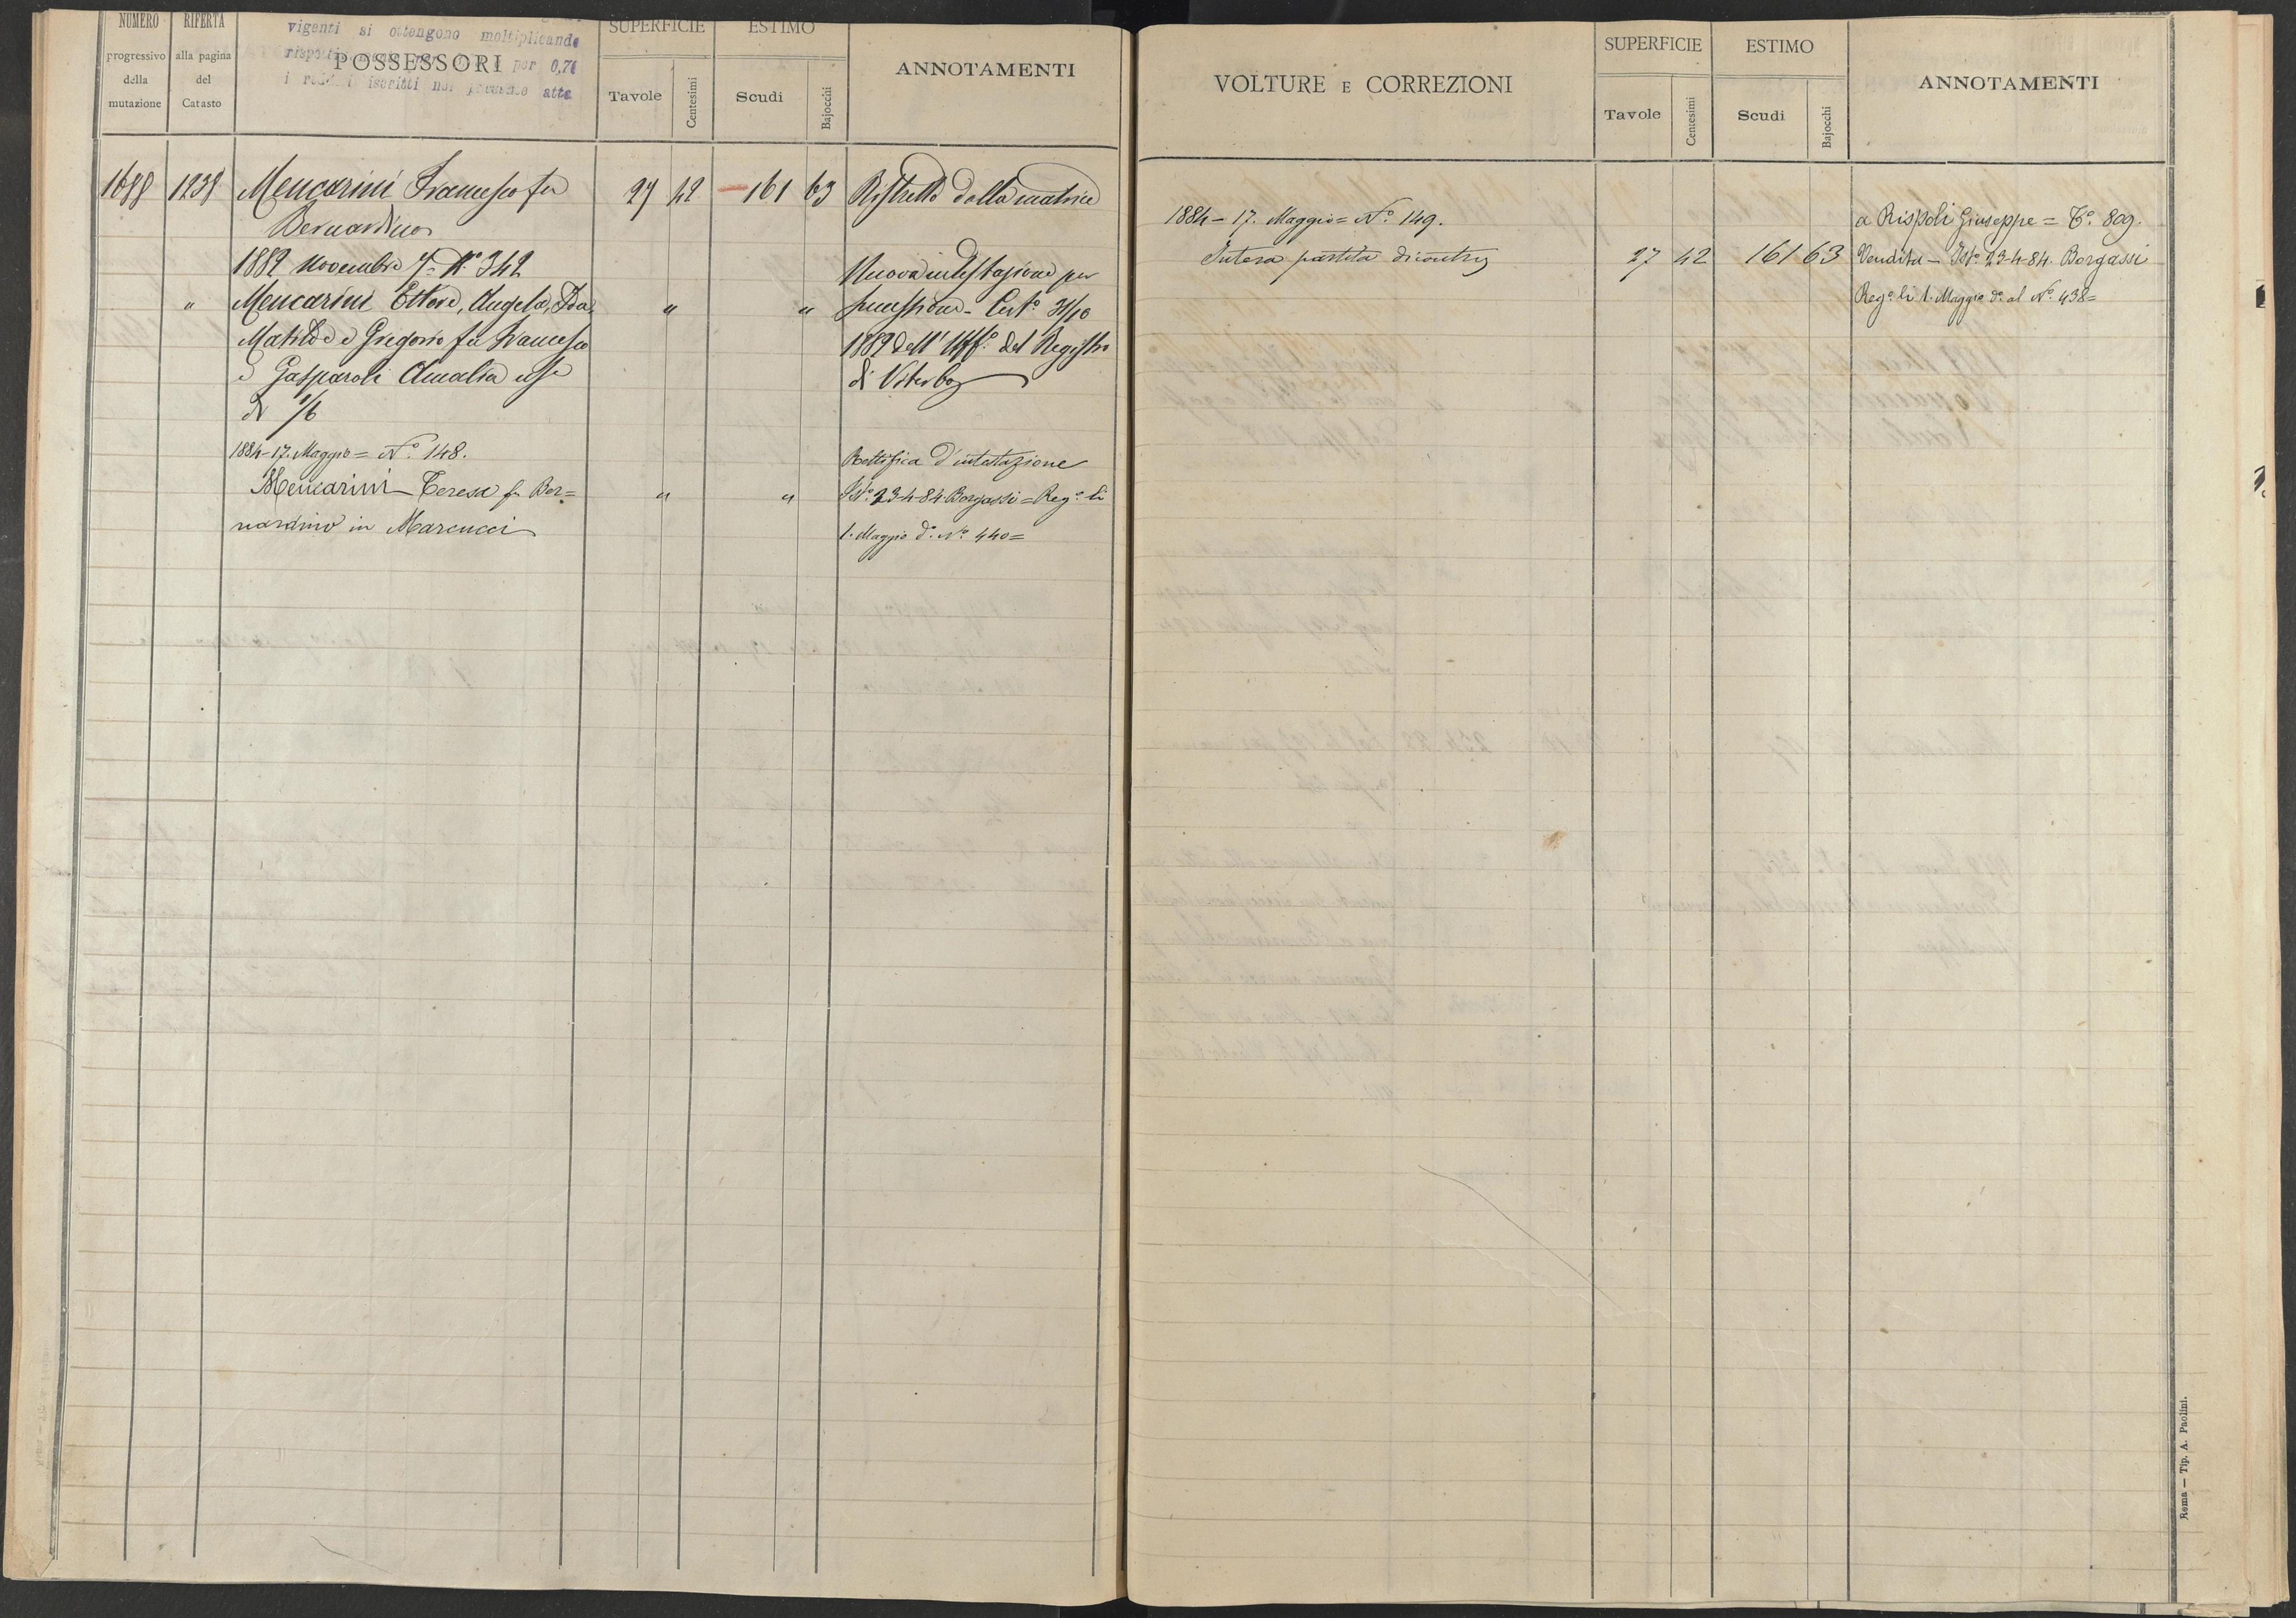 NUMERO progressivo della mutazione
RIFERTA alla pagina del Catasto
vigenti si ottengono moltiplicando
per 0,71
i iscritti nel presente atto
POSSESSORI
SUPERFICIE
Tavole
Centesimi
ESTIMO
Scudi
Bajocchi
ANNOTAMENTI
1688 1238 Mencarini Francesco fu 27 42 161 63 Ristretto della matrice
Bernardino
1882 Novembre 7= N.o 342 Nuova intestazione per
" Mencarini Ettore, Angela, Ida, " " successione - Cert.o 31/10
Matilde e Gregorio fu Francesco 1882 dell' Uff.o del Registro
e Gasparoli Amalia usf.a di Viterbo
di 1/6
1884-17. Maggio= N.o 148. Rettifica d'intestazione
Mencarini Teresa fu Ber= " " Ist.o 23-4-84 Borgassi = Reg.o li
nardino in Marcucci 1. Maggio d.o N.o 440=
VOLTURE E CORREZIONI
SUPERFICIE
Tavole
Centesimi
ESTIMO
Scudi
Bajocchi
ANNOTAMENTI
1884 - 17. Maggio = N.o 149. a Rispoli Giuseppe = T.o 809.
Intera partita dicontro 27 42 161 63 Vendita - Ist.o 23-4-84. Borgassi
Reg.o li 1. Maggio d.o al N.o 438=
Roma — Tip. A. Paolini.